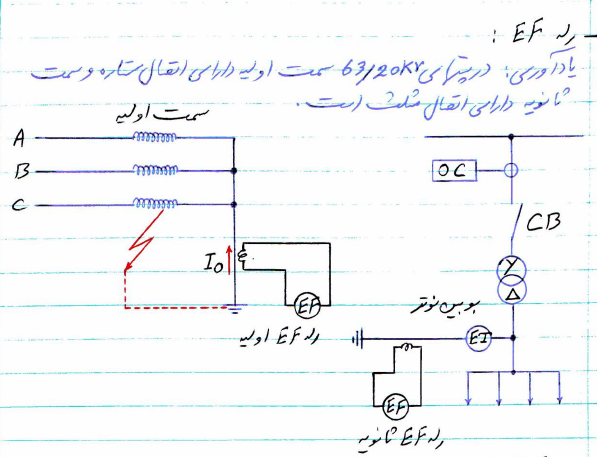 رله EF :
یادآوری: در پستهای 63/20KV سمت اولیه دارای اتصال ستاره و سمت
ثانویه دارای اتصال مثلث است.
سمت اولیه
A
B
C
I0
EF
رله EF اولیه
OC
CB
Y
Δ
بوبین نوتر
EI
EF
رله EF ثانویه